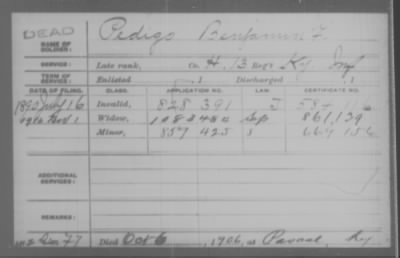 DEAD
NAME OF SOLDIER: Pedigo Benjamin F
SERVICE: Late rank, Co. H, 13 Reg't Ky Inf
TERM OF SERVICE: Enlisted 1 Discharged 1
DATE OF FILING. CLASS. APPLICATION NO. LAW. CERTIFICATE NO.
1890 July 16 Invalid, 828 391 J 584
1906 Nov 1 Widow, 861,139
Minor, 857 425 S 664 156
ADDITIONAL SERVICES:
REMARKS:
Died Oct 6, 1906, at Ky